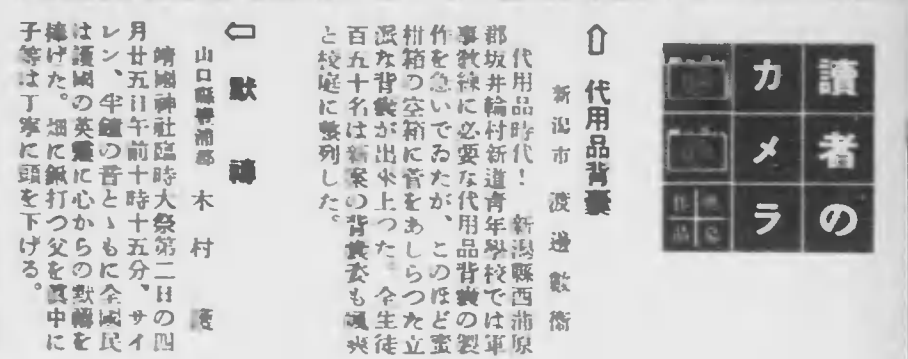 讀者の
カメラ
代用品背嚢
新潟市 渡邊
代用品時代! 新潟縣西蒲原
郡坂井輪村新道青年學校では軍
事教練に必要な代用品背嚢の製
作を急いでゐたが、このほど蜜
柑箱の空箱に菅をあしらつた立
派な背嚢が出來上つた。全生徒
百五十名は新案の背嚢姿も颯爽
と校庭に整列した。
默禱
山口縣 木村
靖國神社臨時大祭第二日の四
月廿五日午前十時十五分、サイ
レン、半鐘の音とゝもに全國民
は護國の英靈に心からの默禱を
捧げた。畑に鍬打つ父を眞中に
子等は丁寧に頭を下げる。